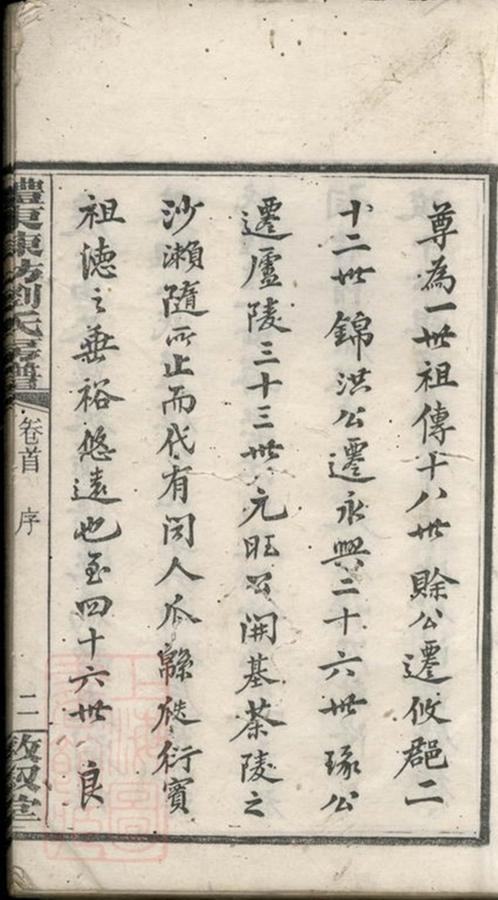 尊為一世祖傳十八世賒公遷攸邑二
十二世錦洪公遷永興二十六世琢公
遷廬陵三十三世元旺公開基荼陵之
沙瀨隨所止而代有聞人瓜緜瓞衍實
祖德之垂裕悠遠也至四十六世良
醴東陳坊劉氏房譜
卷首 序
二
敦叙堂